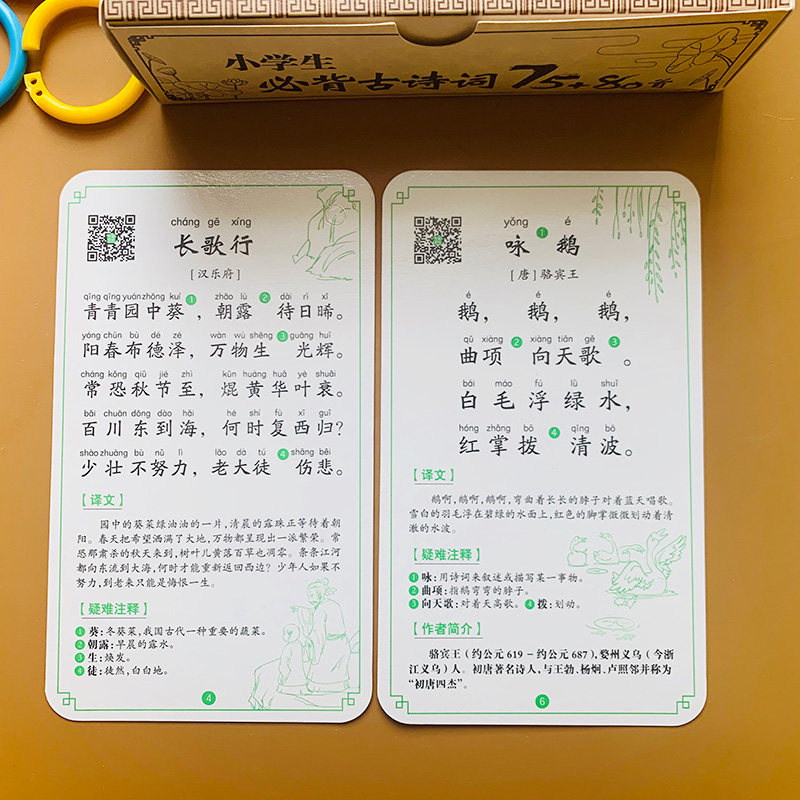 小学生
必背古诗词75+80首
cháng gē xíng
长歌行
[汉乐府]
qīng qīng yuán zhōng kuí zhāo lù dài rì xī
青青园中葵①，朝露②待日晞。
yáng chūn bù dé zé wàn wù shēng guāng huī
阳春布德泽，万物生③光辉。
cháng kǒng qiū jié zhì kūn huáng huā yè shuāi
常恐秋节至，焜黄华叶衰。
bǎi chuān dōng dào hǎi hé shí fù xī guī
百川东到海，何时复西归？
shào zhuàng bù nǔ lì lǎo dà tú shāng bēi
少壮不努力，老大徒④伤悲。
【译文】
园中的葵菜绿油油的一片，清晨的露珠正等待着朝
阳。春天把希望洒满了大地，万物都呈现出一派繁荣。常
恐那肃杀的秋天来到，树叶儿黄落百草也凋零。条条江河
都向东流到大海，何时才能重新返回西边？少年人如果不
努力，到老来只能是悔恨一生。
【疑难注释】
①葵：冬葵菜，我国古代一种重要的蔬菜。
②朝露：早晨的露水。
③生：焕发。
④徒：徒然，白白地。
4
yǒng é
咏①鹅
[唐]骆宾王
é é é
鹅，鹅，鹅，
qū xiàng xiàng tiān gē
曲项②向天歌③。
bái máo fú lǜ shuǐ
白毛浮绿水，
hóng zhǎng bō qīng bō
红掌拨④清波。
【译文】
鹅啊，鹅啊，鹅啊，弯曲着长长的脖子对着蓝天唱歌。
雪白的羽毛浮在碧绿的水面上，红色的脚掌微微划动着清
澈的水波。
【疑难注释】
①咏：用诗词来叙述或描写某一事物。
②曲项：指鹅弯弯的脖子。
③向天歌：对着天高歌。④拨：划动。
【作者简介】
骆宾王（约公元619－约公元687），婺州义乌（今浙
江义乌）人。初唐著名诗人，与王勃、杨炯、卢照邻并称为
“初唐四杰”。
6